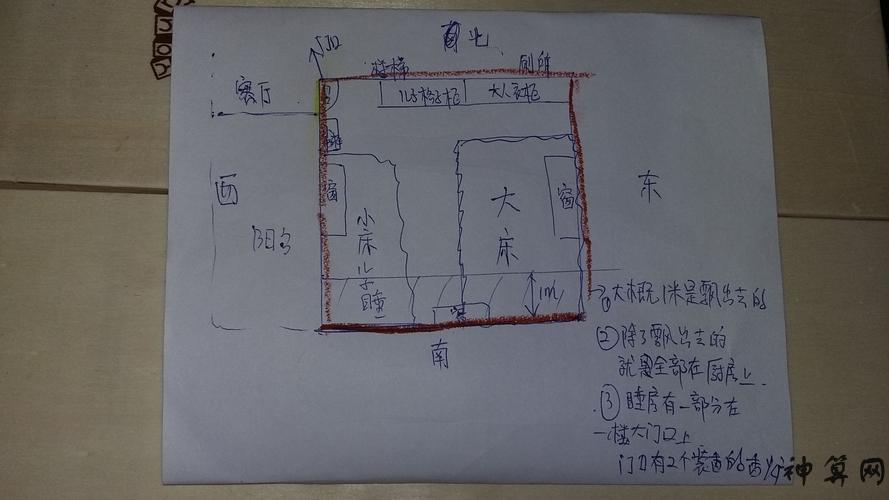 北
门口
楼梯
厕所
客厅
儿子格子柜
大人衣柜
西
窗
窗
东
阳台
小床儿子睡
大床
1m
窗
南
①大概1米是飘出去的
②除了飘出去的
就是全部在厨房上.
③睡房有一部分在
一楼大门口上
门口有2个装香的香炉
神算网